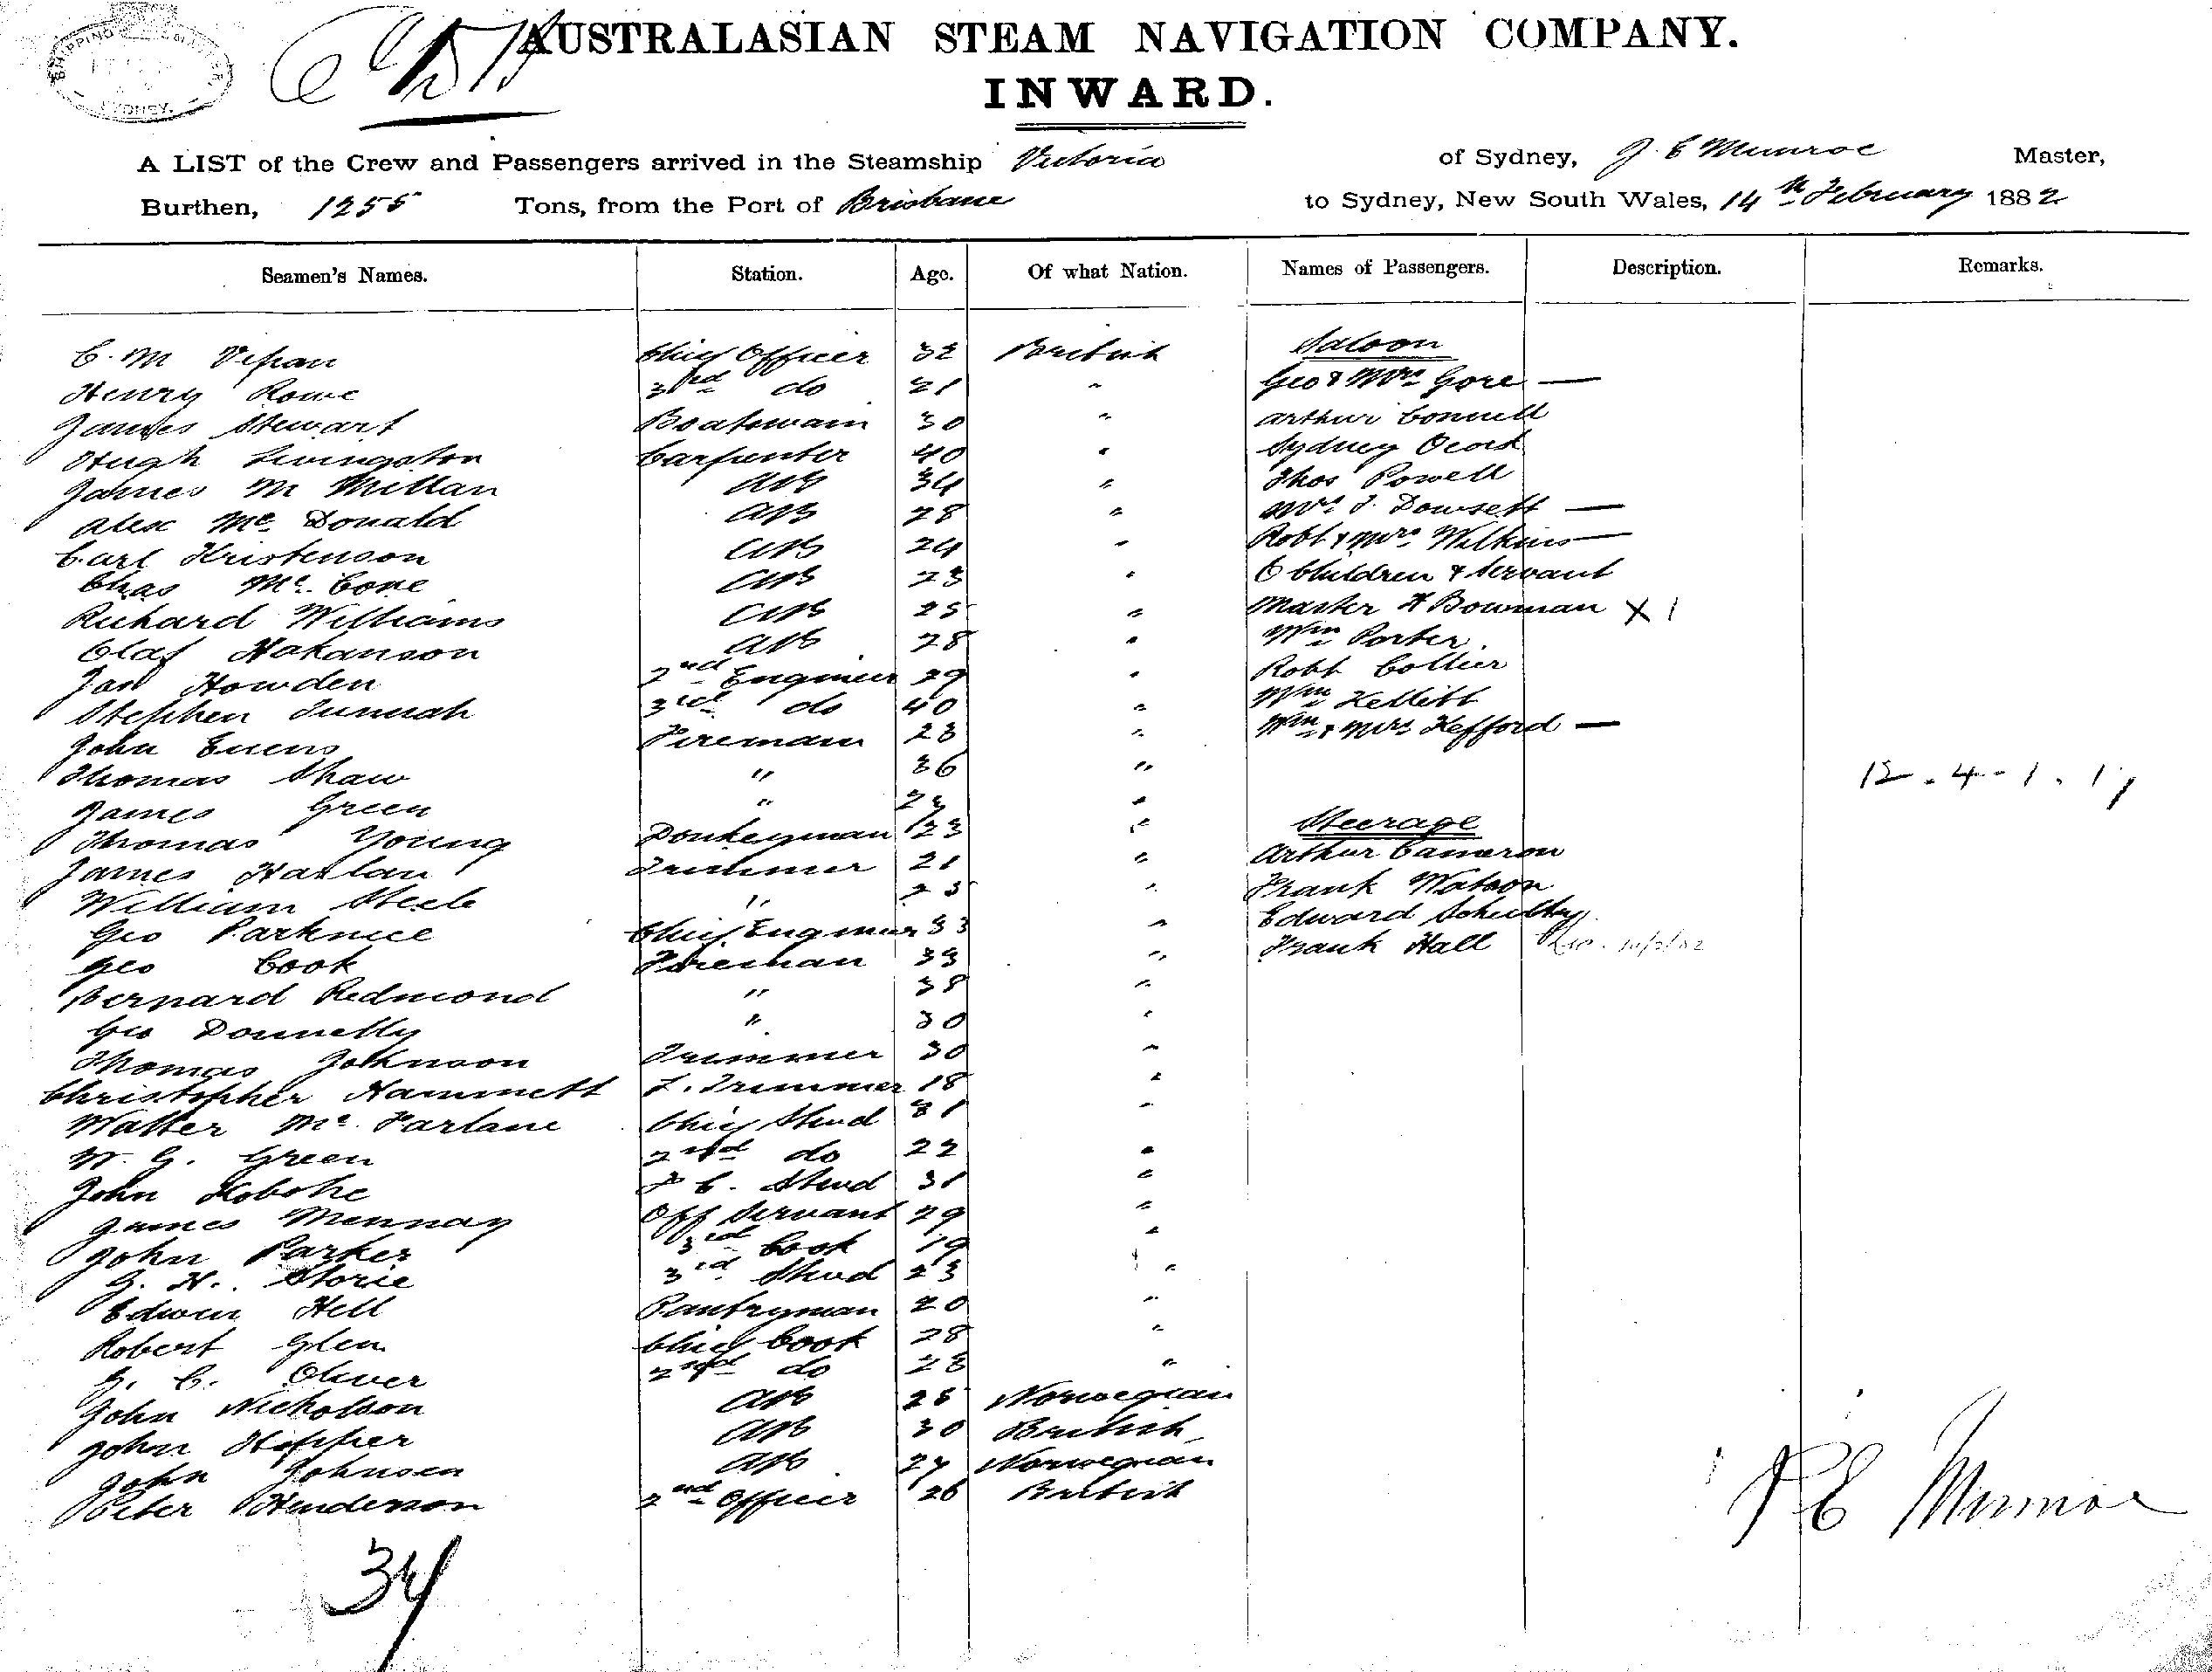 SHIPPING MASTER
SYDNEY.
AUSTRALASIAN STEAM NAVIGATION COMPANY.
INWARD.
A LIST of the Crew and Passengers arrived in the Steamship Victoria of Sydney, J. E Munroe Master,
Burthen, 1255 Tons, from the Port of Brisbane to Sydney, New South Wales, 14th February 1882
Seamen's Names. Station. Age. Of what Nation. Names of Passengers. Description. Remarks.
C. M Vepan Chief Officer 32 British
Henry Rowe 3rd do 21 "
James Stewart Boatswain 30 "
Hugh Livingston Carpenter 40 "
James M Millan AB 34 "
Alex Mc Donald AB 28 "
Carl Kristenson AB 24 "
Chas Mc Cone AB 23 "
Richard Williams AB 25 "
Olaf Hakanson AB 28 "
Jas Howden 2nd Engineer 29 "
Stephen Tunnah 3rd do 40 "
John Evens Fireman 23 "
Thomas Shaw " 36 "
James Green " 23 "
Thomas Young Donkeyman 23 "
James Harlan Trimmer 21 "
William Steele " 25 "
Geo Parknice Chief Engineer 33 "
Geo Cook Fireman 33 "
Bernard Redmond " 38 "
Geo Donnelly " 30 "
Thomas Johnson Trimmer 30 "
Christopher Hammett F. Trimmer 18 "
Walter Mc Farlane Chief Stewd 31 "
W. G. Green 2nd do 22 "
John F C. Stewd 31 "
James Mennay Off Servant 29 "
John Parker 3rd Cook 19 "
G. H. Storie 3rd Stewd 23 "
Edwin Hell Pantryman 20 "
Robert Glen Chief Cook 28 "
G. C. Oliver 2nd do 28 "
John Nicholson AB 25 Norwegian
John Hopper AB 30 British
John Johnsen AB 27 Norwegian
Peter Henderson 2nd Officer 26 British
34
Saloon
Geo & Mrs Gore —
Arthur Connell
Sydney
Thos Powell
Mrs J. Dowsett —
Robt & Mrs Wilkins —
6 Children & Servant
Master H Bowman X 1
Wm Porter
Robt Collier
Wm Kellitt
Wm & Mrs Hefford —
12 . 4 - 1 . 17
Steerage
Arthur Cameron
Frank Watson
Edward
Frank Hall
J E Munroe